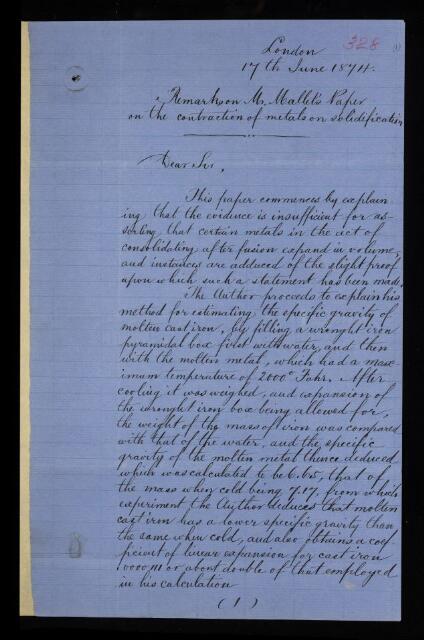 328
(1)
London
17th June 1874.
Remarks on Mr. Mallet's Paper
on the contraction of metals on solidification
Dear Sir,
This paper commences by explain
ing that the evidence is insufficient for as-
serting that certain metals in the act of
consolidating after fusion expand in volume,
and instances are adduced of the slight proof
upon which such a statement has been made.
The Author proceeds to explain his
method for estimating the specific gravity of
molten cast iron, by filling a wrought iron
pyramidal box first with water, and then
with the molten metal, which had a max-
imum temperature of 2000° Fahr. After
cooling it was weighed, and expansion of
the wrought iron box being allowed for,
the weight of the mass of iron was compared
with that of the water, and the specific
gravity of the molten metal thence deduced
which was calculated to be 6.65, that of
the mass when cold being 7.17, from which
experiment the Author deduces that molten
cast iron has a lower specific gravity than
the same when cold, and also obtains a coef-
ficient of linear expansion for cast iron
or about double of that employed
in his calculation
(1)